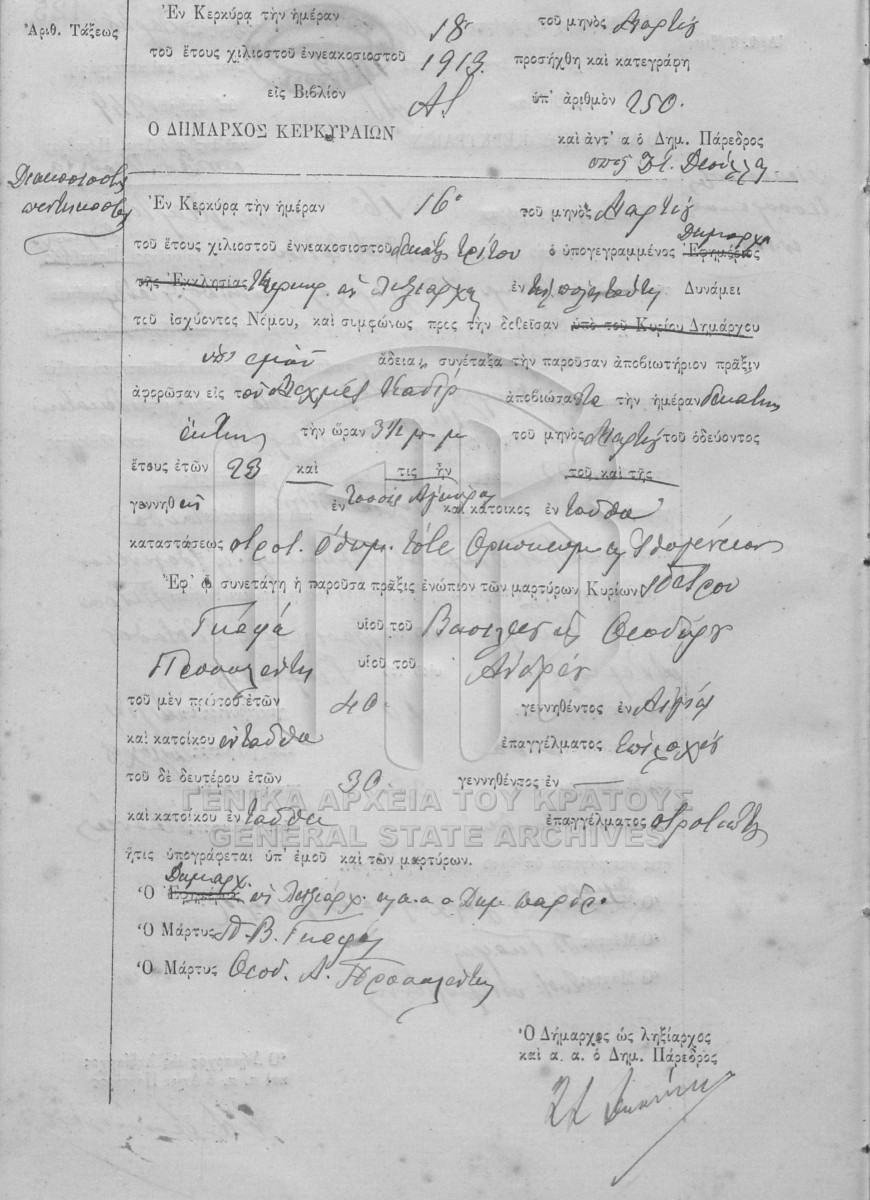 Ἀριθ. Τάξεως
Ἐν Κερκύρᾳ τὴν ἡμέραν 18η τοῦ μηνὸς Μαρτίου
τοῦ ἔτους χιλιοστοῦ ἐννεακοσιοστοῦ 1913 προσήχθη καὶ κατεγράφη
εἰς Βιβλίον Α ὑπ' ἀριθμὸν 250.
Ο ΔΗΜΑΡΧΟΣ ΚΕΡΚΥΡΑΙΩΝ
καὶ ἀντ' α ὁ Δημ. Πάρεδρος
Διακοσιοστὴ
πεντηκοστὴ
Ἐν Κερκύρᾳ τὴν ἡμέραν 16η τοῦ μηνὸς Μαρτίου
τοῦ ἔτους χιλιοστοῦ ἐννεακοσιοστοῦ δεκάτου τρίτου ὁ ὑπογεγραμμένος Δήμαρχος Ἐφημέριος
τῆς Ἐκκλησίας Κερκυρ. ὡς Ληξίαρχος ἐν τῇ πόλει ταύτῃ Δυνάμει
τοῦ ἰσχύοντος Νόμου, καὶ συμφώνως προς τὴν δοθεῖσαν ὑπὸ τοῦ Κυρίου Δημάρχου
ὑπ' ἐμοῦ ἄδειαν, συνέταξα τὴν παροῦσαν ἀποβιωτήριον πρᾶξιν
ἀφορῶσαν εἰς τὸν Μεχμὲτ Καδὶρ ἀποβιώσαντα τὴν ἡμέραν δεκάτην
ἕκτην τὴν ὥραν 3½ μ. μ. τοῦ μηνὸς Μαρτίου τοῦ ὁδεύοντος
ἔτους ἐτῶν 23 καὶ τις ἦν τοῦ καὶ τῆς
γεννηθεὶς ἐν Ἀγκύρα καὶ κατοικος ἐν ταῦθα
καταστάσεως στρατ. ὀθωμ. τότε
Ἐφ' ᾧ συνετάγη ἡ παροῦσα πρᾶξις ἐνώπιον τῶν μαρτύρων Κυρίων Πέτρου
Γκεφά υἱοῦ τοῦ Βασιλείου καὶ Θεοδώρου
υἱοῦ τοῦ Ἀνδρέου
τοῦ μὲν πρώτου ἐτῶν 40 γεννηθέντος ἐν
καὶ κατοίκου ἐνταῦθα ἐπαγγέλματος
τοῦ δὲ δευτέρου ἐτῶν 30 γεννηθέντος ἐν —
καὶ κατοίκου ἐν ταῦθα ἐπαγγέλματος στρατιώτης
ἥτις ὑπογράφεται ὑπ' ἐμοῦ καὶ τῶν μαρτύρων.
Ὁ Ἐφημέριος Δημαρχ. ὡς Ληξίαρχ. κ α. α ὁ Δημ παρεδρ.
Ὁ Μάρτυς Π. Β. Γκεφάς
Ὁ Μάρτυς Θεοδ. Α.
Ὁ Δήμαρχος ὡς ληξίαρχος
καὶ α. α. ὁ Δημ. Πάρεδρος
ΓΕΝΙΚΑ ΑΡΧΕΙΑ ΤΟΥ ΚΡΑΤΟΥΣ
GENERAL STATE ARCHIVES